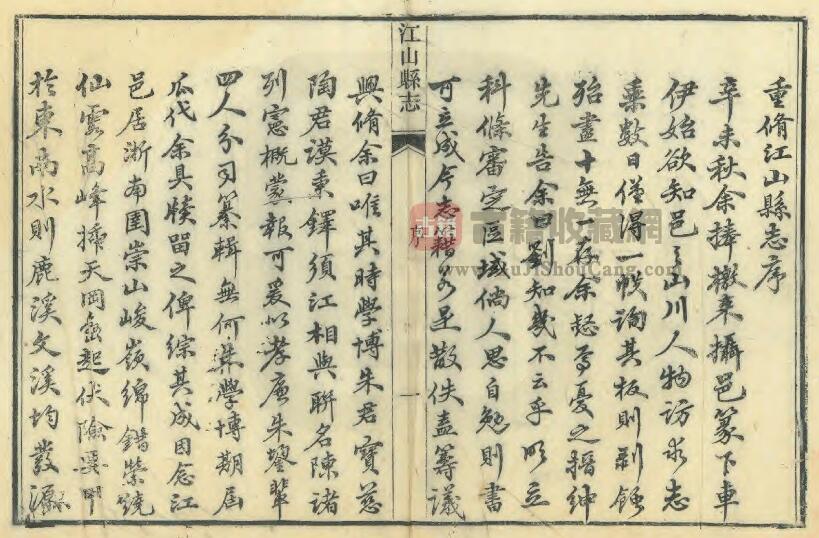 重脩江山縣志序
辛未秋余捧檄來攝邑篆下車
伊始欲知邑之山川人物訪求志
乘數日僅得一帙詢其板則剥蝕
殆盡十無一存余慭焉憂之搢紳
先生告余曰劉知幾不云乎明立
科條審定區域倘人思自勉則書
可立成今志籍若是散佚盍籌議
江山縣志
序
一
興脩余曰唯其時學博朱君寶慈
陶君謨秉鐸須江相與聯名陳諸
列憲概蒙報可爰以孝廉朱鑾輩
四人分司纂輯無何葉學博期屆
瓜代余具牘留之俾綜其成因念江
邑居浙南圉崇山峻嶺綿錯縈繞
仙雲高峰插天岡巒起伏險要甲
於東南水則鹿溪文溪均發源
古籍收藏網
www.GuJiShouCang.com